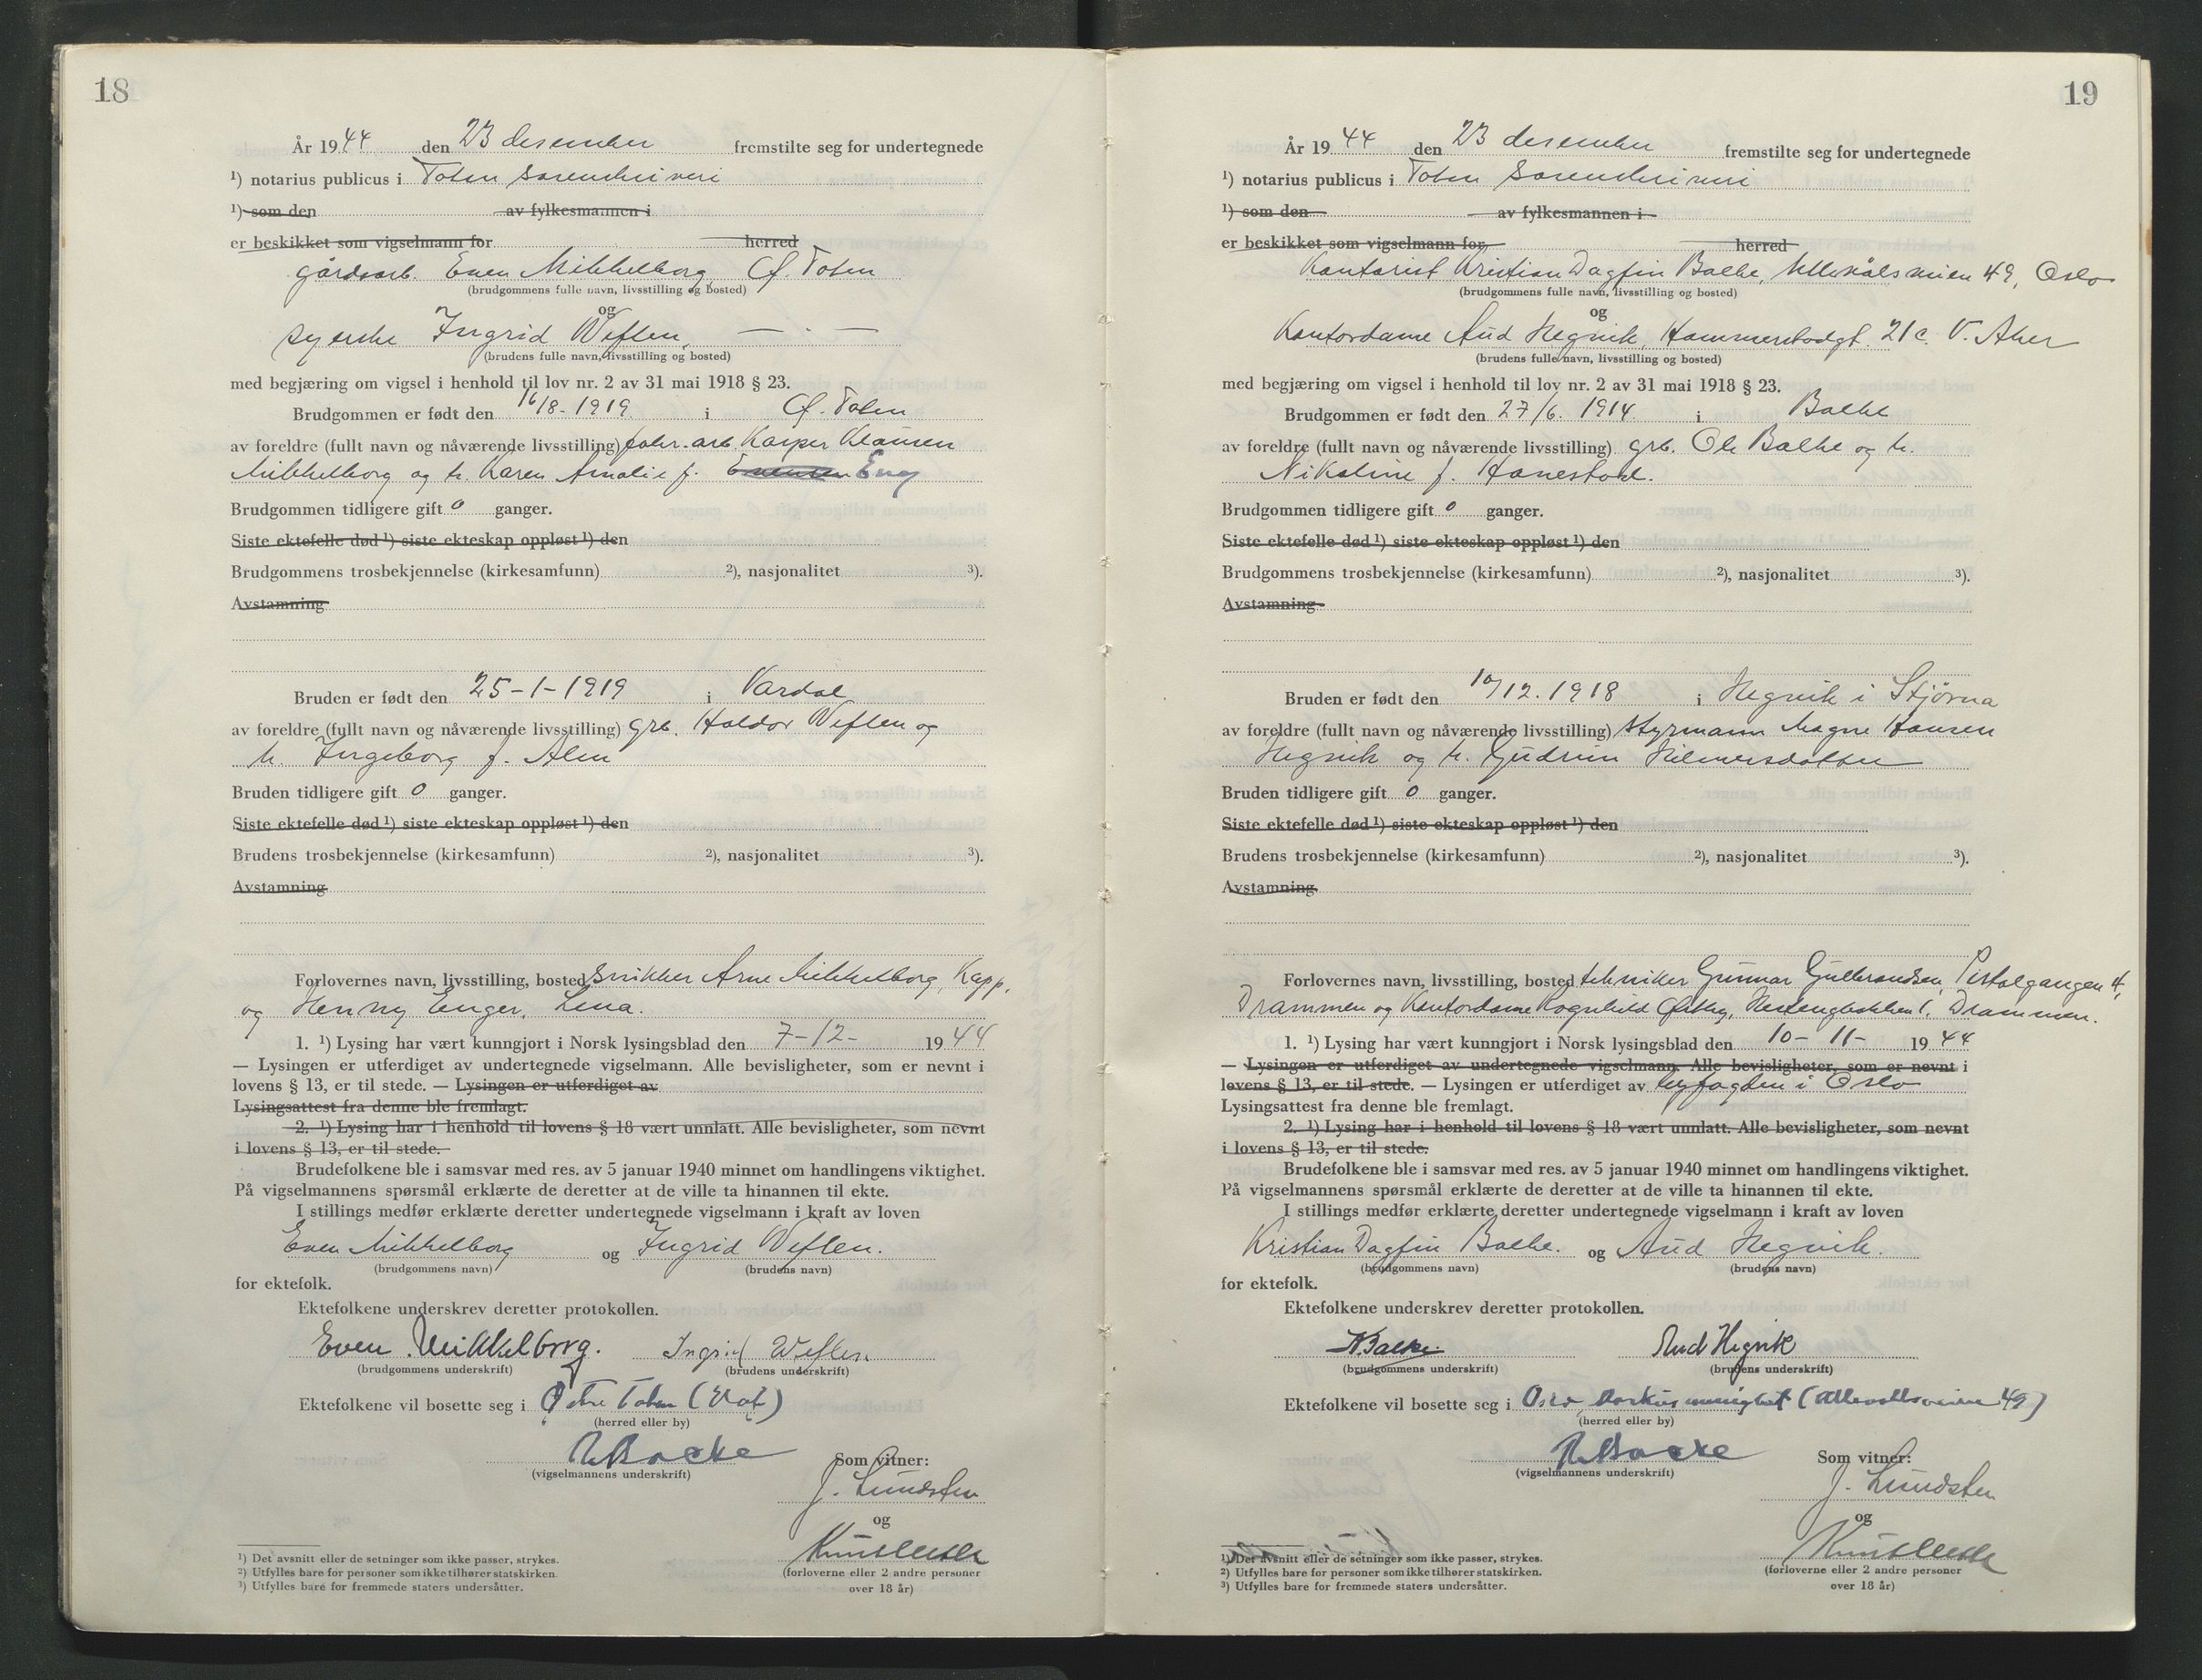 18
År 1944 den 23 desember fremstilte seg for undertegnede
¹) notarius publicus i Toten sorenskriveri
¹) som den av fylkesmannen i
er beskikket som vigselmann for herred
gårdsarb. Even Mikkelborg Ø. Toten
(brudgommens fulle navn, livsstilling og bosted)
og
syerske Ingrid Weflen, — . —
(brudens fulle navn, livsstilling og bosted)
med begjæring om vigsel i henhold til lov nr. 2 av 31 mai 1918 § 23.
Brudgommen er født den 16/8-1919 i Ø. Toten
av foreldre (fullt navn og nåværende livsstilling) fabr.arb. Kasper Klausen
Mikkelborg og h. Karen Amalie f. Evensen Eng
Brudgommen tidligere gift 0 ganger.
Siste ektefelle død ¹) siste ekteskap oppløst ¹) den
Brudgommens trosbekjennelse (kirkesamfunn) ²), nasjonalitet ³).
Avstamning
Bruden er født den 25-1-1919 i Vardal
av foreldre (fullt navn og nåværende livsstilling) grb. Haldor Weflen og
h. Ingeborg f. Alm
Bruden tidligere gift 0 ganger.
Siste ektefelle død ¹) siste ekteskap oppløst ¹) den
Brudens trosbekjennelse (kirkesamfunn) ²), nasjonalitet ³).
Avstamning
Forlovernes navn, livsstilling, bosted snikker Arne Mikkelborg, Kapp,
og Henny Enger, Lena.
1. ¹) Lysing har vært kunngjort i Norsk lysingsblad den 7-12- 1944
— Lysingen er utferdiget av undertegnede vigselmann. Alle bevisligheter, som er nevnt i
lovens § 13, er til stede. — Lysingen er utferdiget av
Lysingsattest fra denne ble fremlagt.
2. ¹) Lysing har i henhold til lovens § 18 vært unnlatt. Alle bevisligheter, som nevnt
i lovens § 13, er til stede.
Brudefolkene ble i samsvar med res. av 5 januar 1940 minnet om handlingens viktighet.
På vigselmannens spørsmål erklærte de deretter at de ville ta hinannen til ekte.
I stillings medfør erklærte deretter undertegnede vigselmann i kraft av loven
Even Mikkelborg og Ingrid Weflen.
(brudgommens navn) (brudens navn)
for ektefolk.
Ektefolkene underskrev deretter protokollen.
Even Mikkelborg. Ingrid Weflen
(brudgommens underskrift) (brudens underskrift)
Ektefolkene vil bosette seg i Østre Toten (Hof)
(herred eller by)
Backe
(vigselmannens underskrift)
Som vitner:
J. Lundsten
og
(forloverne eller 2 andre personer
over 18 år)
¹) Det avsnitt eller de setninger som ikke passer, strykes.
²) Utfylles bare for personer som ikke tilhører statskirken.
³) Utfylles bare for fremmede staters undersåtter.
19
År 1944 den 23 desember fremstilte seg for undertegnede
¹) notarius publicus i Toten sorenskriveri
¹) som den av fylkesmannen i
er beskikket som vigselmann for herred
Kontorist Kristian Dagfin Balke, Ullevålsveien 49, Oslo
(brudgommens fulle navn, livsstilling og bosted)
og
Kontordame Aud Hegvik, Hammerstadgt. 21c. V. Aker
(brudens fulle navn, livsstilling og bosted)
med begjæring om vigsel i henhold til lov nr. 2 av 31 mai 1918 § 23.
Brudgommen er født den 27/6. 1914 i Balke
av foreldre (fullt navn og nåværende livsstilling) grb. Ole Balke og h.
Nikoline f. Hanestad.
Brudgommen tidligere gift 0 ganger.
Siste ektefelle død ¹) siste ekteskap oppløst ¹) den
Brudgommens trosbekjennelse (kirkesamfunn) ²), nasjonalitet ³).
Avstamning
Bruden er født den 10/12. 1918 i Hegvik i Stjørna
av foreldre (fullt navn og nåværende livsstilling) styrmann Magne Hansen
Hegvik og h. Gudrun Hilmersdatter
Bruden tidligere gift 0 ganger.
Siste ektefelle død ¹) siste ekteskap oppløst ¹) den
Brudens trosbekjennelse (kirkesamfunn) ²), nasjonalitet ³).
Avstamning
Forlovernes navn, livsstilling, bosted tekniker Gunnar Gulbrandsen, Pistolgangen 4,
Drammen og Kontordame Ragnhild Østby, 1, Drammen.
1. ¹) Lysing har vært kunngjort i Norsk lysingsblad den 10- 11- 1944
— Lysingen er utferdiget av undertegnede vigselmann. Alle bevisligheter, som er nevnt i
lovens § 13, er til stede. — Lysingen er utferdiget av byfogden i Oslo
Lysingsattest fra denne ble fremlagt.
2. ¹) Lysing har i henhold til lovens § 18 vært unnlatt. Alle bevisligheter, som nevnt
i lovens § 13, er til stede.
Brudefolkene ble i samsvar med res. av 5 januar 1940 minnet om handlingens viktighet.
På vigselmannens spørsmål erklærte de deretter at de ville ta hinannen til ekte.
I stillings medfør erklærte deretter undertegnede vigselmann i kraft av loven
Kristian Dagfin Balke. og Aud Hegvik.
(brudgommens navn) (brudens navn)
for ektefolk.
Ektefolkene underskrev deretter protokollen.
K Balke. Aud Hegvik
(brudgommens underskrift) (brudens underskrift)
Ektefolkene vil bosette seg i Oslo, Markus menighet (Ullevållsveien 49)
(herred eller by)
Backe
(vigselmannens underskrift)
Som vitner:
J. Lundsten
og
(forloverne eller 2 andre personer
over 18 år)
¹) Det avsnitt eller de setninger som ikke passer, strykes.
²) Utfylles bare for personer som ikke tilhører statskirken.
³) Utfylles bare for fremmede staters undersåtter.